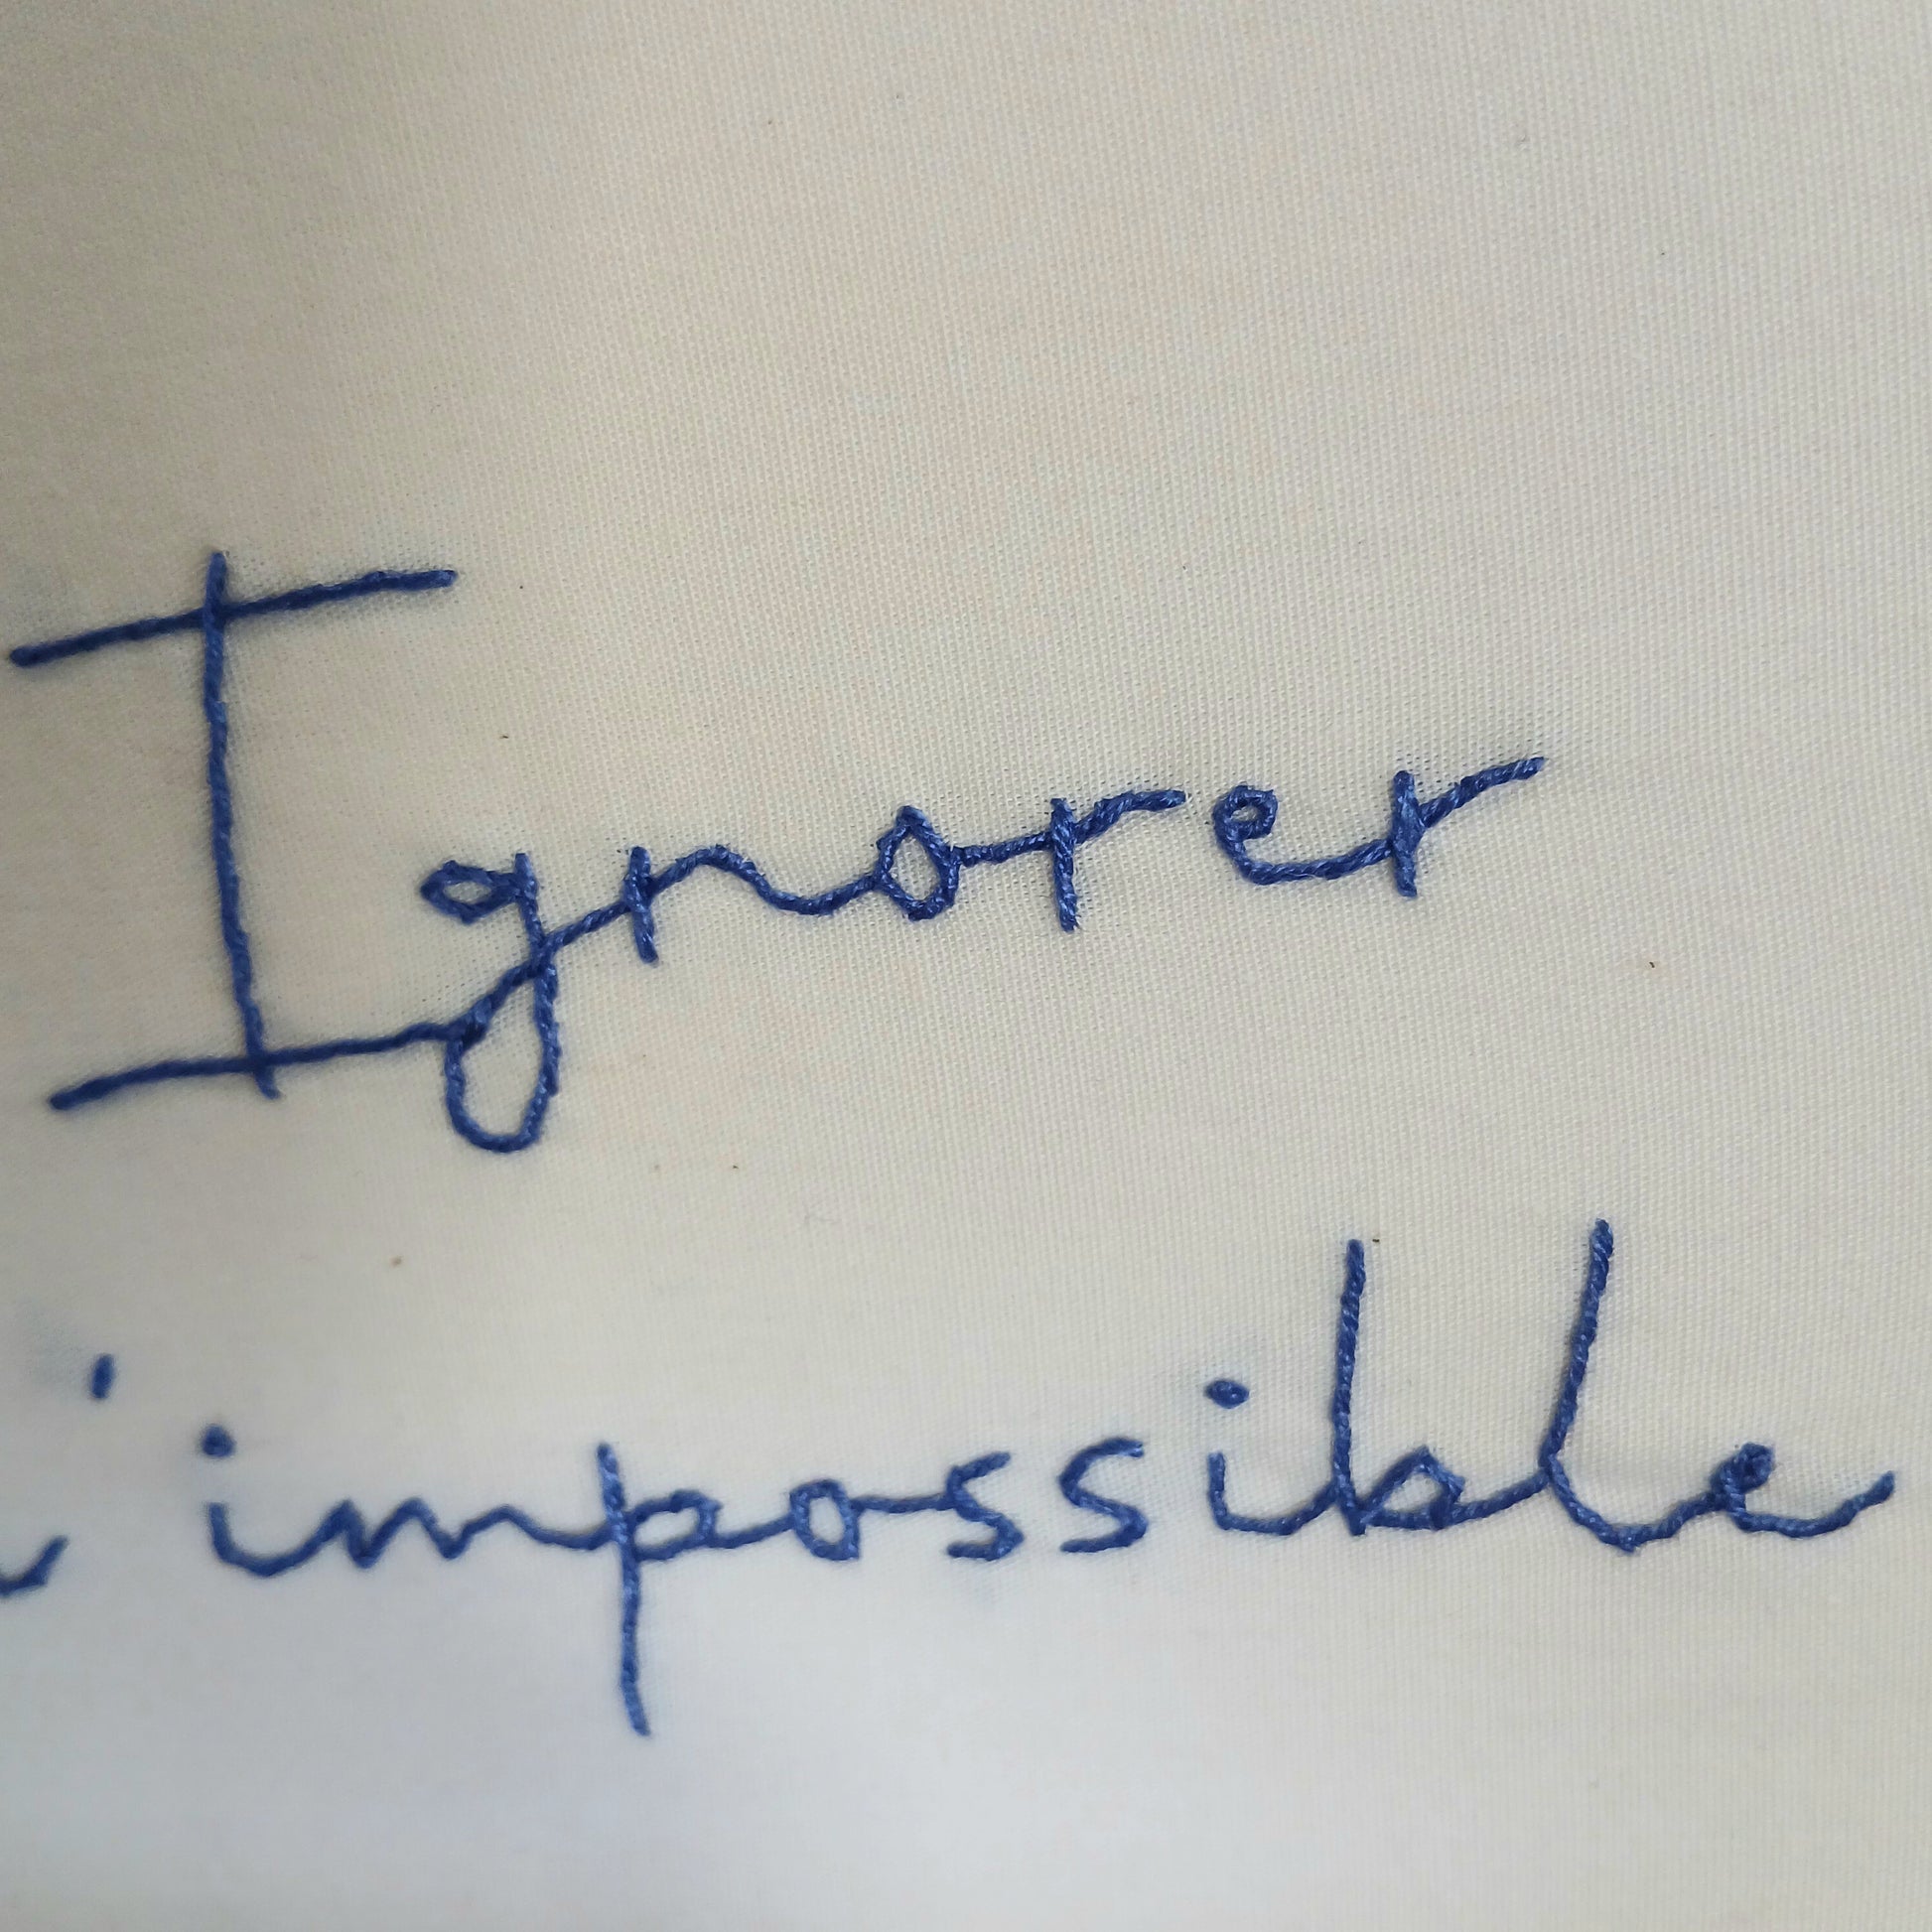 Ignorer
l'impossible